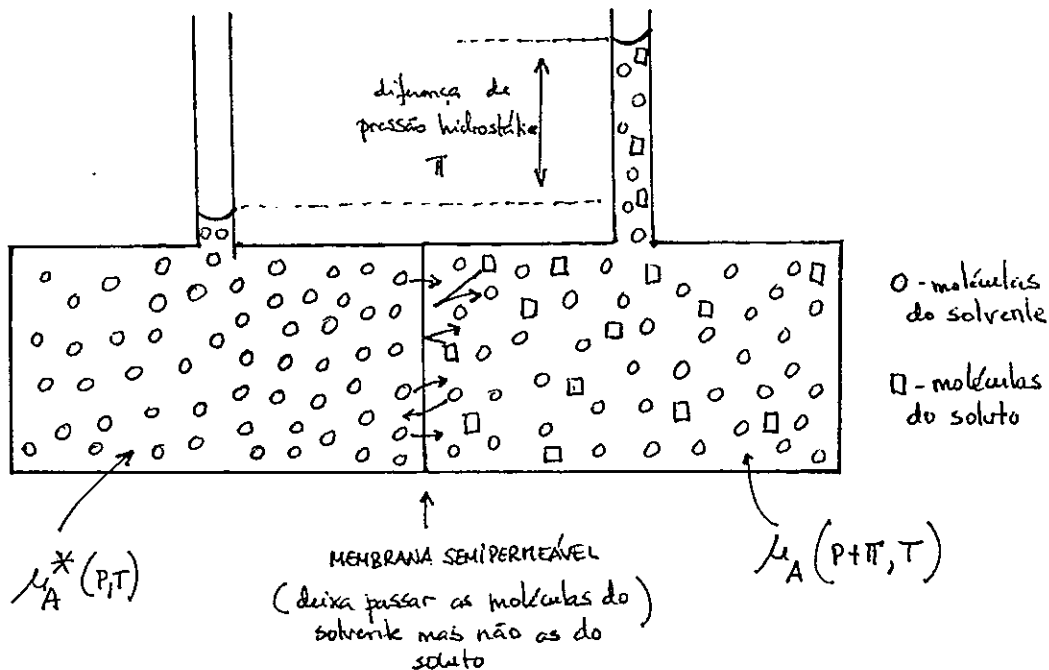 diferença de
pressão hidrostática
π
○ - moléculas
do solvente
□ - moléculas
do soluto
μ_A^* (P,T)
MEMBRANA SEMIPERMEÁVEL
(deixa passar as moléculas do
solvente mas não as do
soluto)
μ_A (P+π, T)